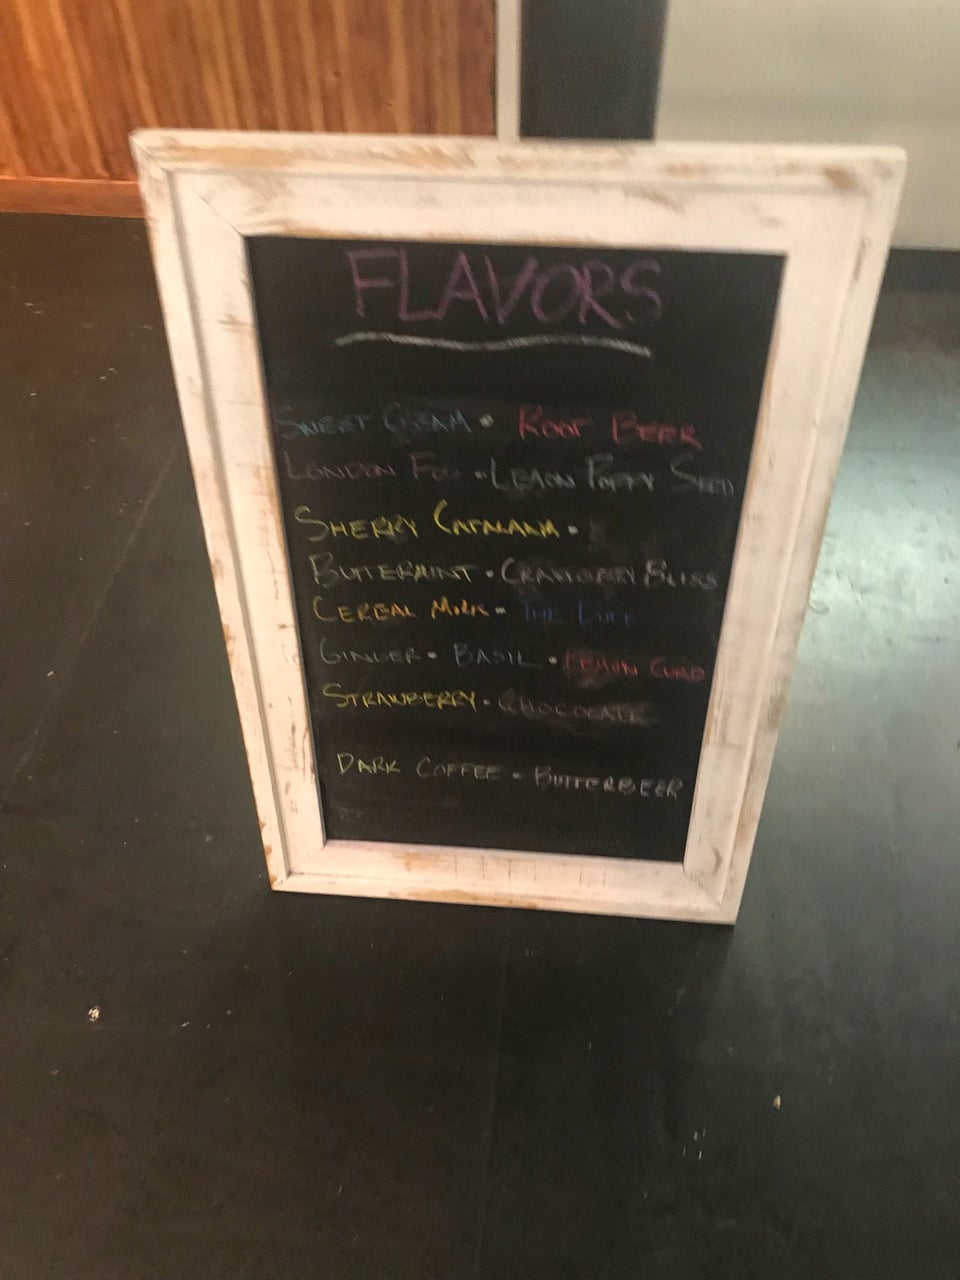 FLAVORS
SWEET CREAM • ROOT BEER
LONDON FOG • LEMON POPPY SEED
SHERRY CATALANA •
BUTTERMINT • CRANBERRY BLISS
CEREAL MILK • THE
GINGER • BASIL • LEMON CURD
STRAWBERRY • CHOCOLATE
DARK COFFEE • BUTTERBEER